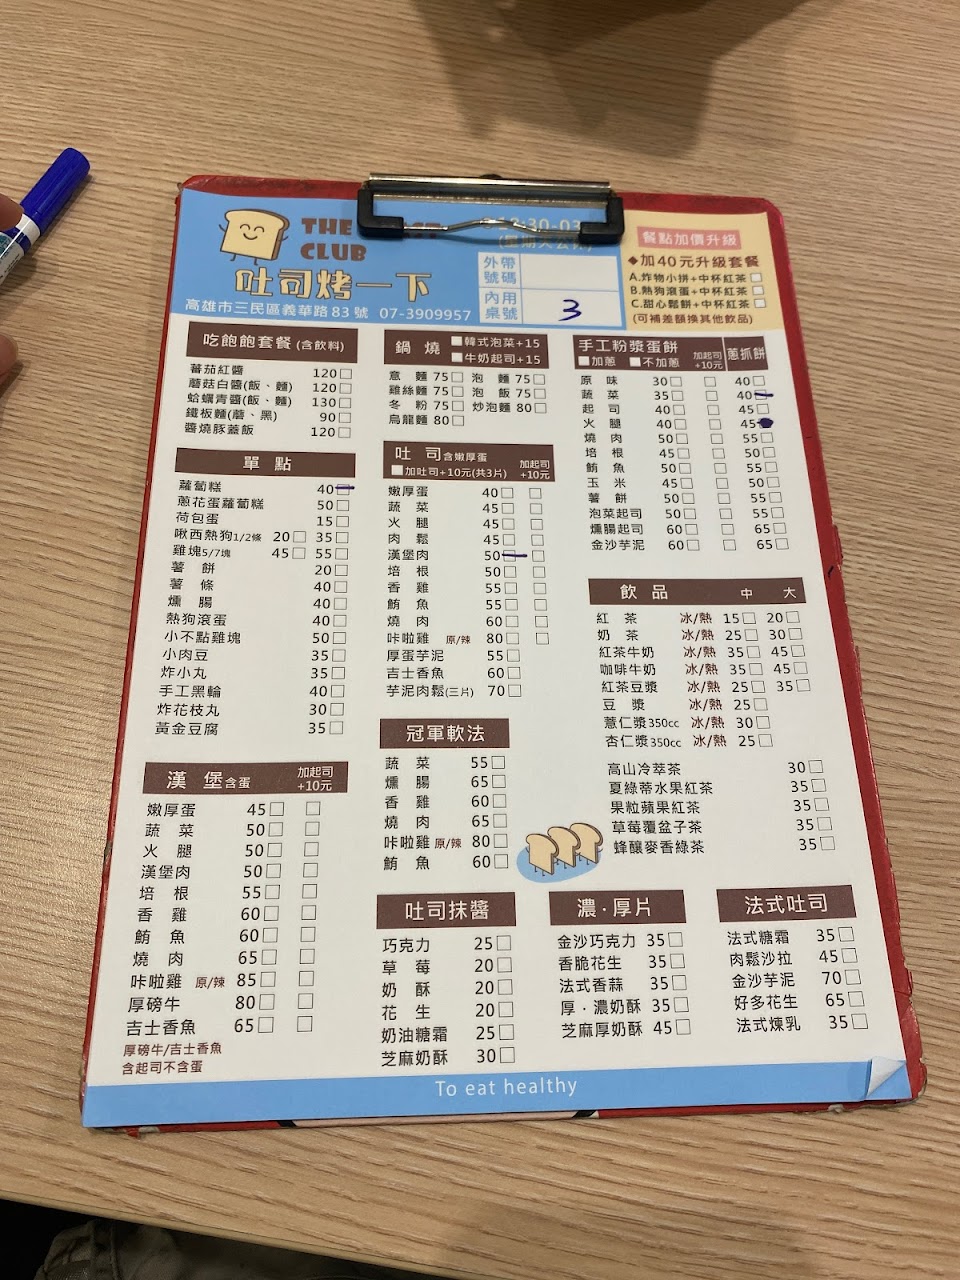 THE
CLUB
吐司烤一下
高雄市三民區義華路83號 07-3909957
外帶號碼
內用桌號 3
餐點加價升級
◆加40元升級套餐
A.炸物小拼+中杯紅茶□
B.熱狗滾蛋+中杯紅茶□
C.甜心鬆餅+中杯紅茶□
(可補差額換其他飲品)
吃飽飽套餐(含飲料)
蕃茄紅醬 120□
蘑菇白醬(飯、麵) 120□
蛤蠣青醬(飯、麵) 130□
鐵板麵(蘑、黑) 90□
醬燒豚蓋飯 120□
單點
蘿蔔糕 40□
蔥花蛋蘿蔔糕 50□
荷包蛋 15□
啾西熱狗1/2條 20□ 35□
雞塊5/7塊 45□ 55□
薯餅 20□
薯條 40□
燻腸 40□
熱狗滾蛋 40□
小不點雞塊 50□
小肉豆 35□
炸小丸 35□
手工黑輪 40□
炸花枝丸 30□
黃金豆腐 35□
漢堡含蛋 加起司+10元
嫩厚蛋 45□ □
蔬菜 50□ □
火腿 50□ □
漢堡肉 50□ □
培根 55□ □
香雞 60□ □
鮪魚 60□ □
燒肉 65□ □
咔啦雞 原/辣 85□ □
厚磅牛 80□ □
吉士香魚 65□ □
厚磅牛/吉士香魚
含起司不含蛋
鍋燒 ■韓式泡菜+15
■牛奶起司+15
意麵 75□ 泡麵 75□
雞絲麵 75□ 泡飯 75□
冬粉 75□ 炒泡麵 80□
烏龍麵 80□
吐司含嫩厚蛋
■加吐司+10元(共3片) 加起司+10元
嫩厚蛋 40□ □
蔬菜 45□ □
火腿 45□ □
肉鬆 45□ □
漢堡肉 50□ □
培根 50□ □
香雞 55□ □
鮪魚 55□ □
燒肉 60□ □
咔啦雞 原/辣 80□ □
厚蛋芋泥 55□
吉士香魚 60□
芋泥肉鬆(三片) 70□
冠軍軟法
蔬菜 55□
燻腸 65□
香雞 60□
燒肉 65□
咔啦雞 原/辣 80□
鮪魚 60□
吐司抹醬
巧克力 25□
草莓 20□
奶酥 20□
花生 20□
奶油糖霜 25□
芝麻奶酥 30□
手工粉漿蛋餅
■加蔥 ■不加蔥 加起司+10元 蔥抓餅
原味 30□ □ 40□
蔬菜 35□ □ 40□
起司 40□ □ 45□
火腿 40□ □ 45□
燒肉 50□ □ 55□
培根 45□ □ 50□
鮪魚 50□ □ 55□
玉米 45□ □ 50□
薯餅 50□ □ 55□
泡菜起司 50□ □ 55□
燻腸起司 60□ □ 65□
金沙芋泥 60□ □ 65□
飲品 中 大
紅茶 冰/熱 15□ 20□
奶茶 冰/熱 25□ 30□
紅茶牛奶 冰/熱 35□ 45□
咖啡牛奶 冰/熱 35□ 45□
紅茶豆漿 冰/熱 25□ 35□
豆漿 冰/熱 25□
薏仁漿350cc 冰/熱 30□
杏仁漿350cc 冰/熱 25□
高山冷萃茶 30□
夏綠蒂水果紅茶 35□
果粒蘋果紅茶 35□
草莓覆盆子茶 35□
蜂釀麥香綠茶 35□
濃·厚片
金沙巧克力 35□
香脆花生 35□
法式香蒜 35□
厚·濃奶酥 35□
芝麻厚奶酥 45□
法式吐司
法式糖霜 35□
肉鬆沙拉 45□
金沙芋泥 70□
好多花生 65□
法式煉乳 35□
To eat healthy